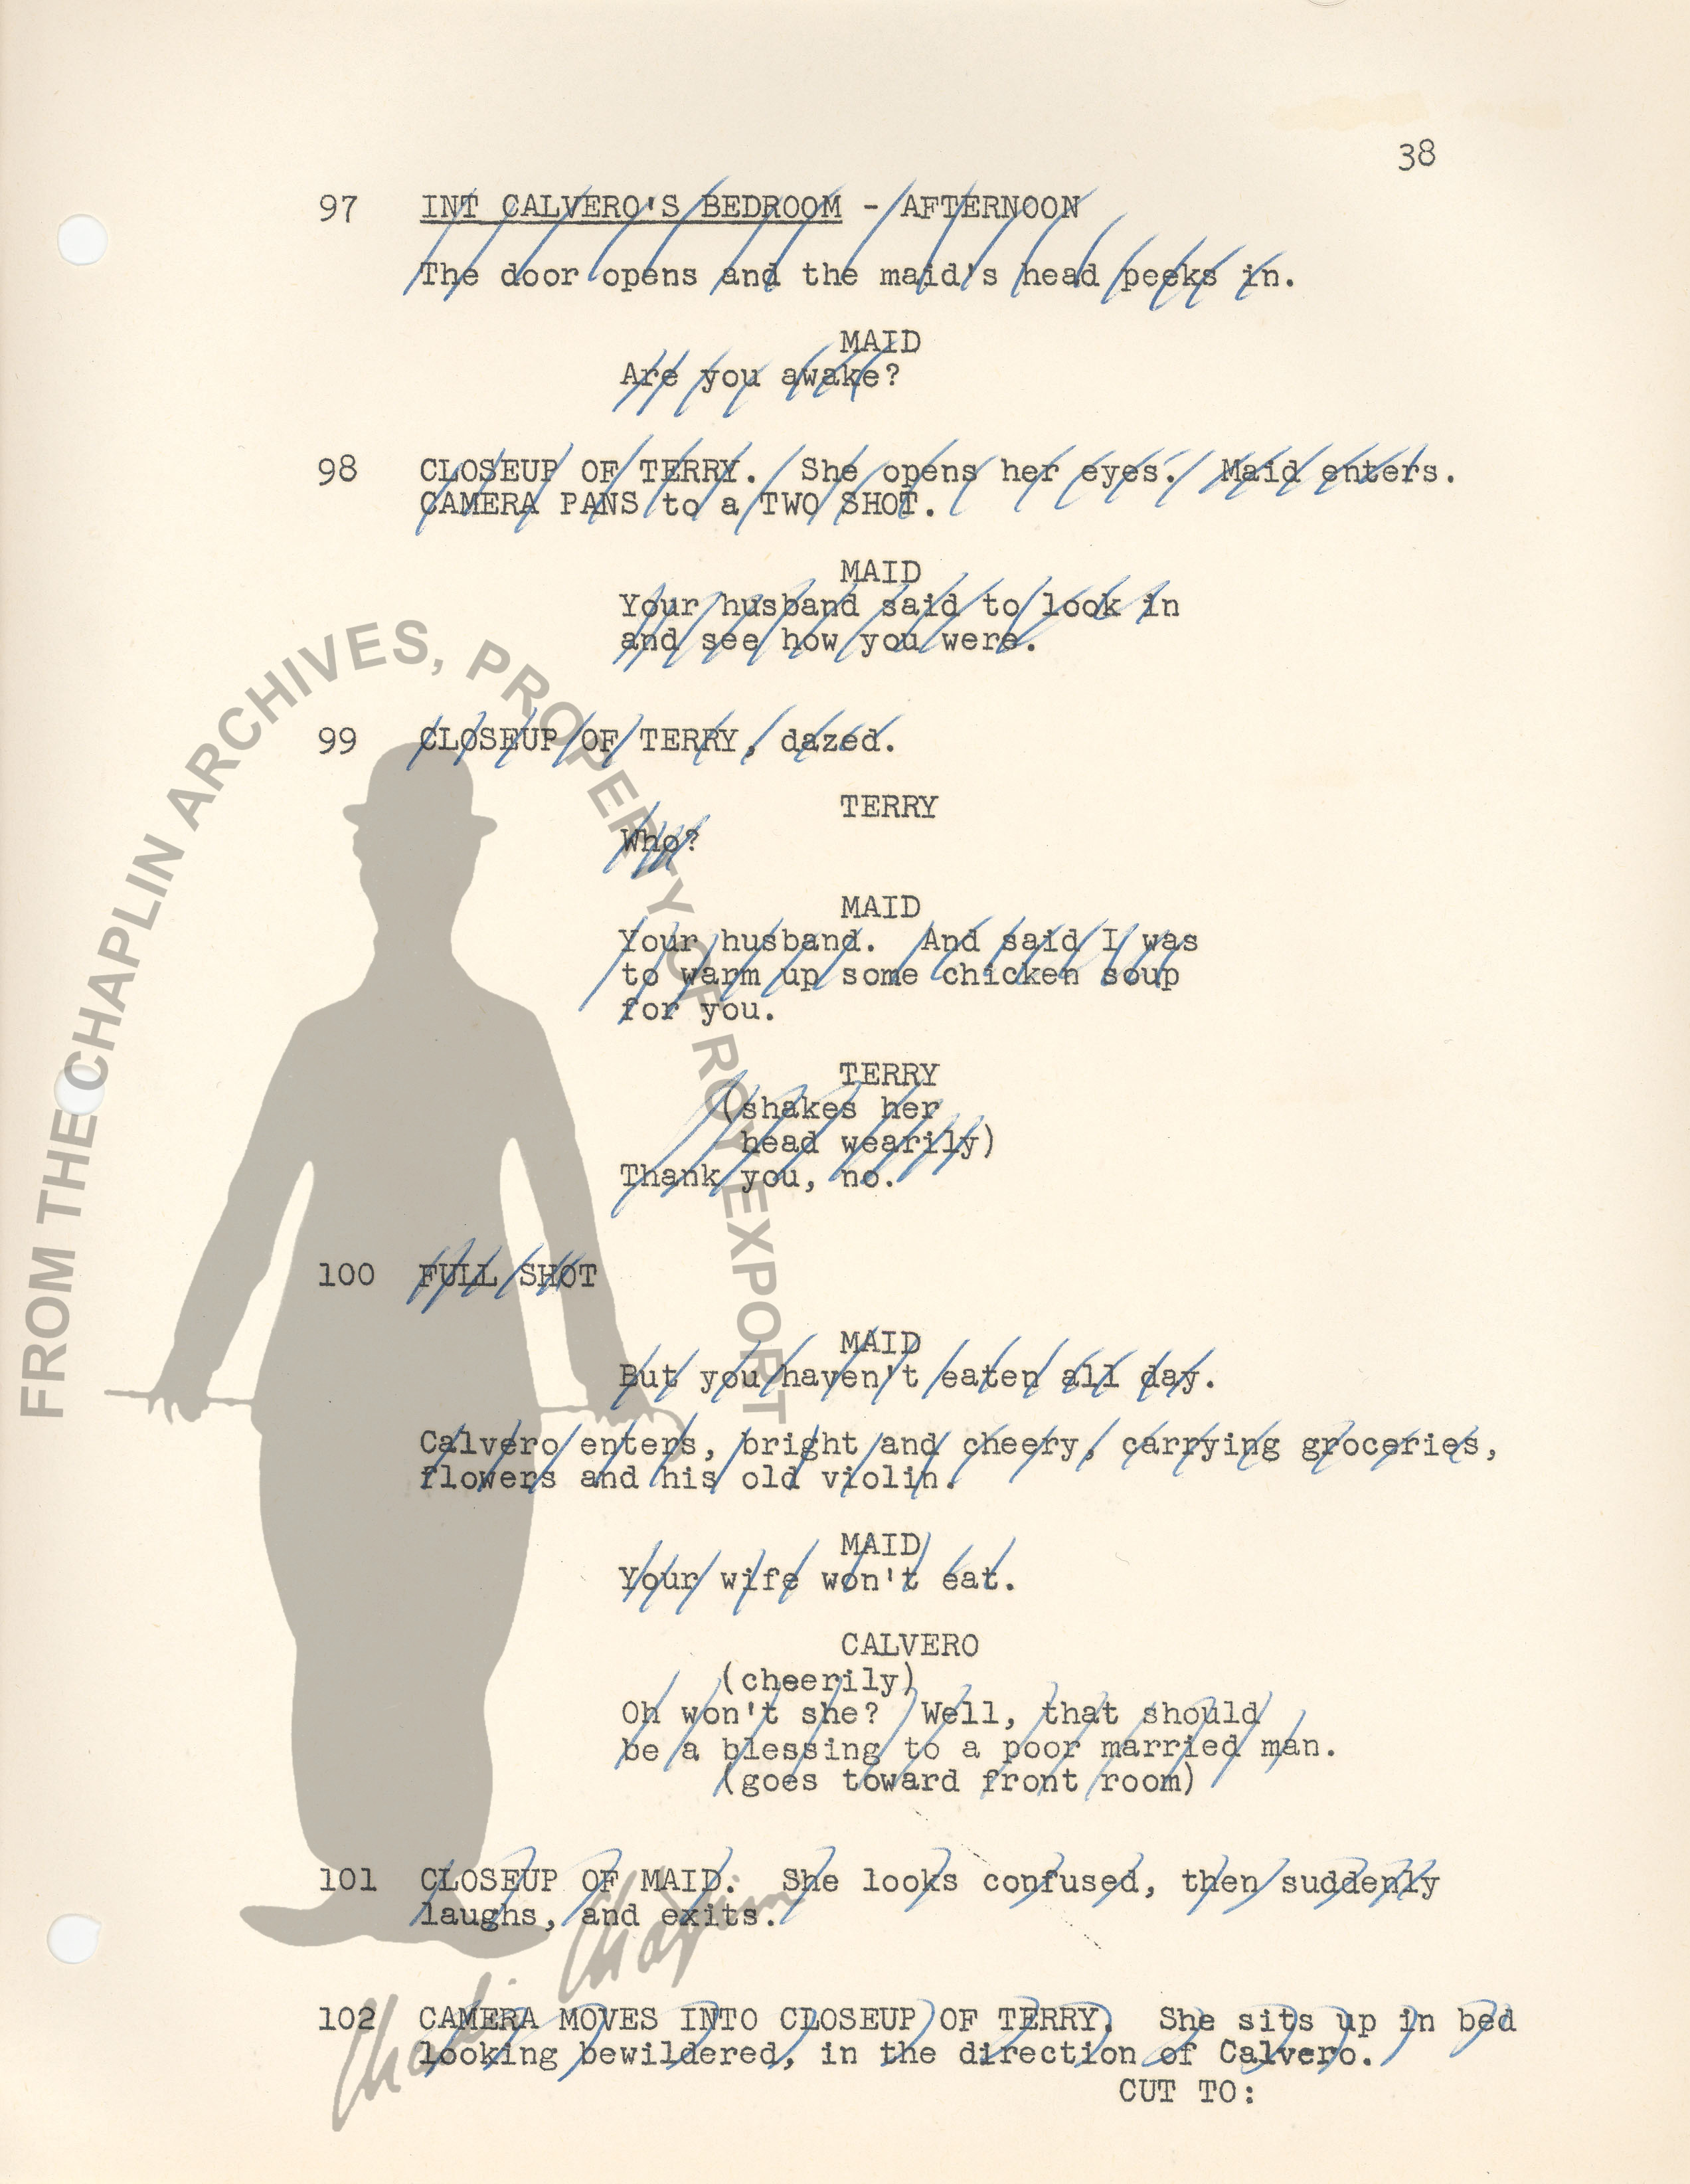 38
97 INT CALVERO'S BEDROOM - AFTERNOON
The door opens and the maid's head peeks in.
MAID
Are you awake?
98 CLOSEUP OF TERRY. She opens her eyes. Maid enters.
CAMERA PANS to a TWO SHOT.
MAID
Your husband said to look in
and see how you were.
99 CLOSEUP OF TERRY, dazed.
TERRY
Who?
MAID
Your husband. And said I was
to warm up some chicken soup
for you.
TERRY
(shakes her
head wearily)
Thank you, no.
100 FULL SHOT
MAID
But you haven't eaten all day.
Calvero enters, bright and cheery, carrying groceries,
flowers and his old violin.
MAID
Your wife won't eat.
CALVERO
(cheerily)
Oh won't she? Well, that should
be a blessing to a poor married man.
(goes toward front room)
101 CLOSEUP OF MAID. She looks confused, then suddenly
laughs, and exits.
102 CAMERA MOVES INTO CLOSEUP OF TERRY. She sits up in bed
looking bewildered, in the direction of Calvero.
CUT TO:
FROM THE CHAPLIN ARCHIVES, PROPERTY OF ROY EXPORT
Charlie Chaplin